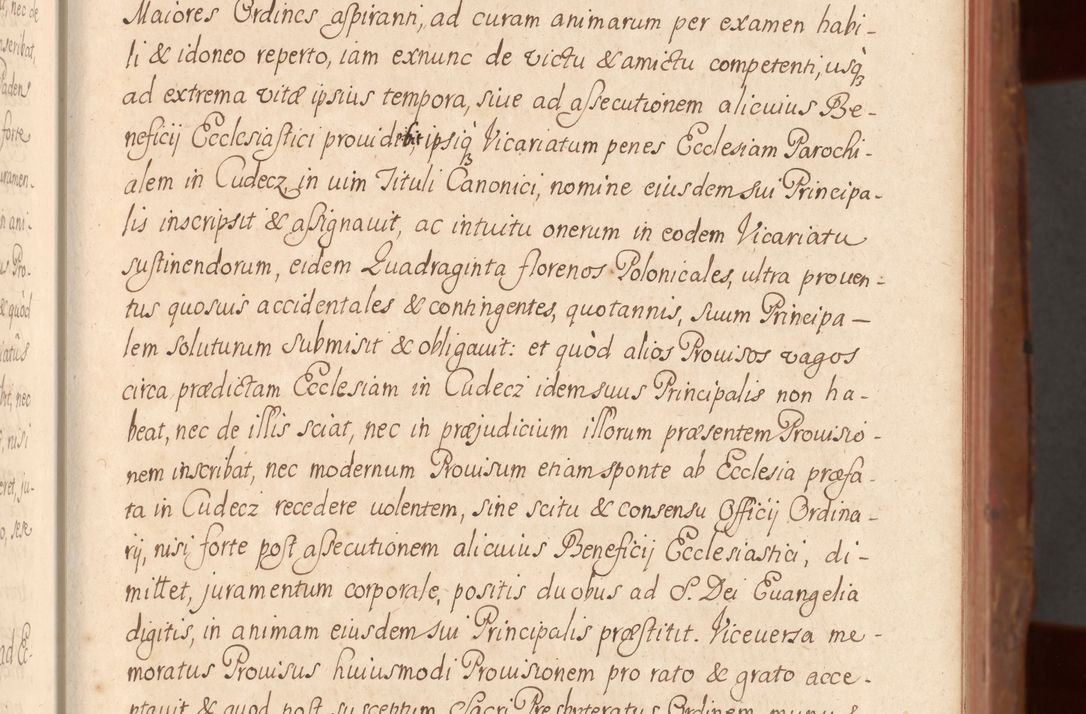 Maiores Ordines aſpiranti, ad curam animarum per examen habi-
li & idoneo reperto, iam exnunc de victu & amictu competenti, usq́
ad extrema vitæ ipsius tempora, siue ad aſsecutionem alicuius Be-
neficij Ecclesiaſtici prouid ipsiq́ Vicariatum penes Ecclesiam Parochi-
alem in Cudecz in uim Tituli Canonici, nomine eiusdem sui Principa-
lis inscripsit & aſsignauit, ac intuitu onerum in eodem Vicariatu
suſtinendorum, eidem Quadraginta florenos Polonicales, ultra prouen-
tus quosuis accidentales & contingentes, quotannis, suum Principa-
lem soluturum submisit & obligauit: et quòd alios Prouisos vagos
circa prædictam Ecclesiam in Cudecz idem suus Principalis non ha-
beat, nec de illis sciat, nec in præjudicium illorum præsentem Prouisio-
nem inscribat, nec modernum Prouisum etiam sponte ab Ecclesia præfa-
ta in Cudecz recedere uolentem, sine scitu & consensu Officij Ordina-
rij, nisi forte poſt aſsecutionem alicuius Beneficij Ecclesiastici, di-
mittet, juramentum corporale, positis duobus ad S. Dei Euangelia
digitis, in animam eiusdem sui Principalis præſtitit. Viceuersa me-
moratus Prouisus huiusmodi Prouisionem pro rato & grato acce-
ptauit & quod poſt susceptum Sacri Presbyteratus Ordinem